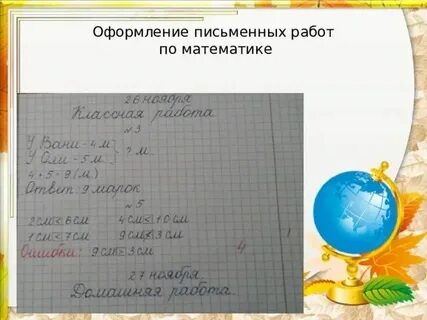 Оформление письменных работ
по математике
26 ноября
Классная работа
№3
У Вани - 4 м
У Оли - 5 м } ? м
4 + 5 = 9 (м)
Ответ 9 марок
№5
2см < 6см 4см < 10см
1см < 7см 9см < 3см
Ошибки: 9см = 3см 4
27 ноября
Домашняя работа